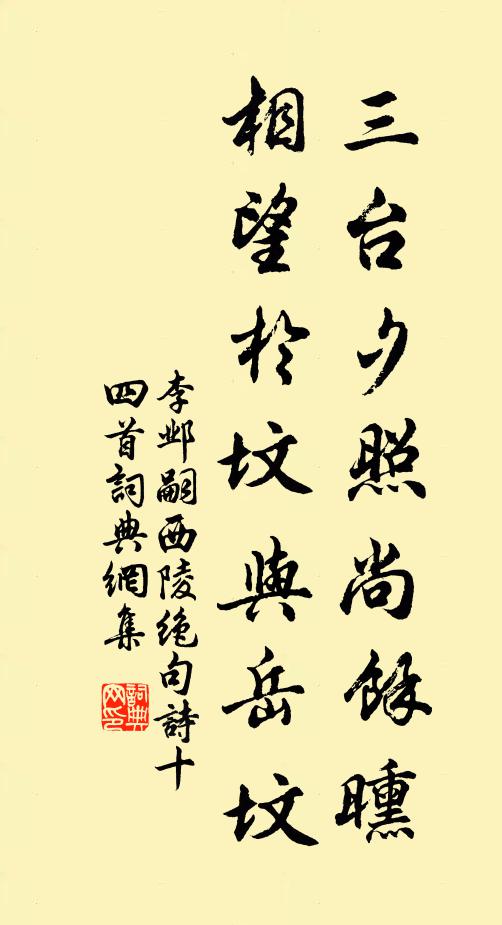 三台夕照尚餘曛
相望於坟與岳坟
李邺嗣西陵绝句詩十
四首詞典網集
詞典
网印